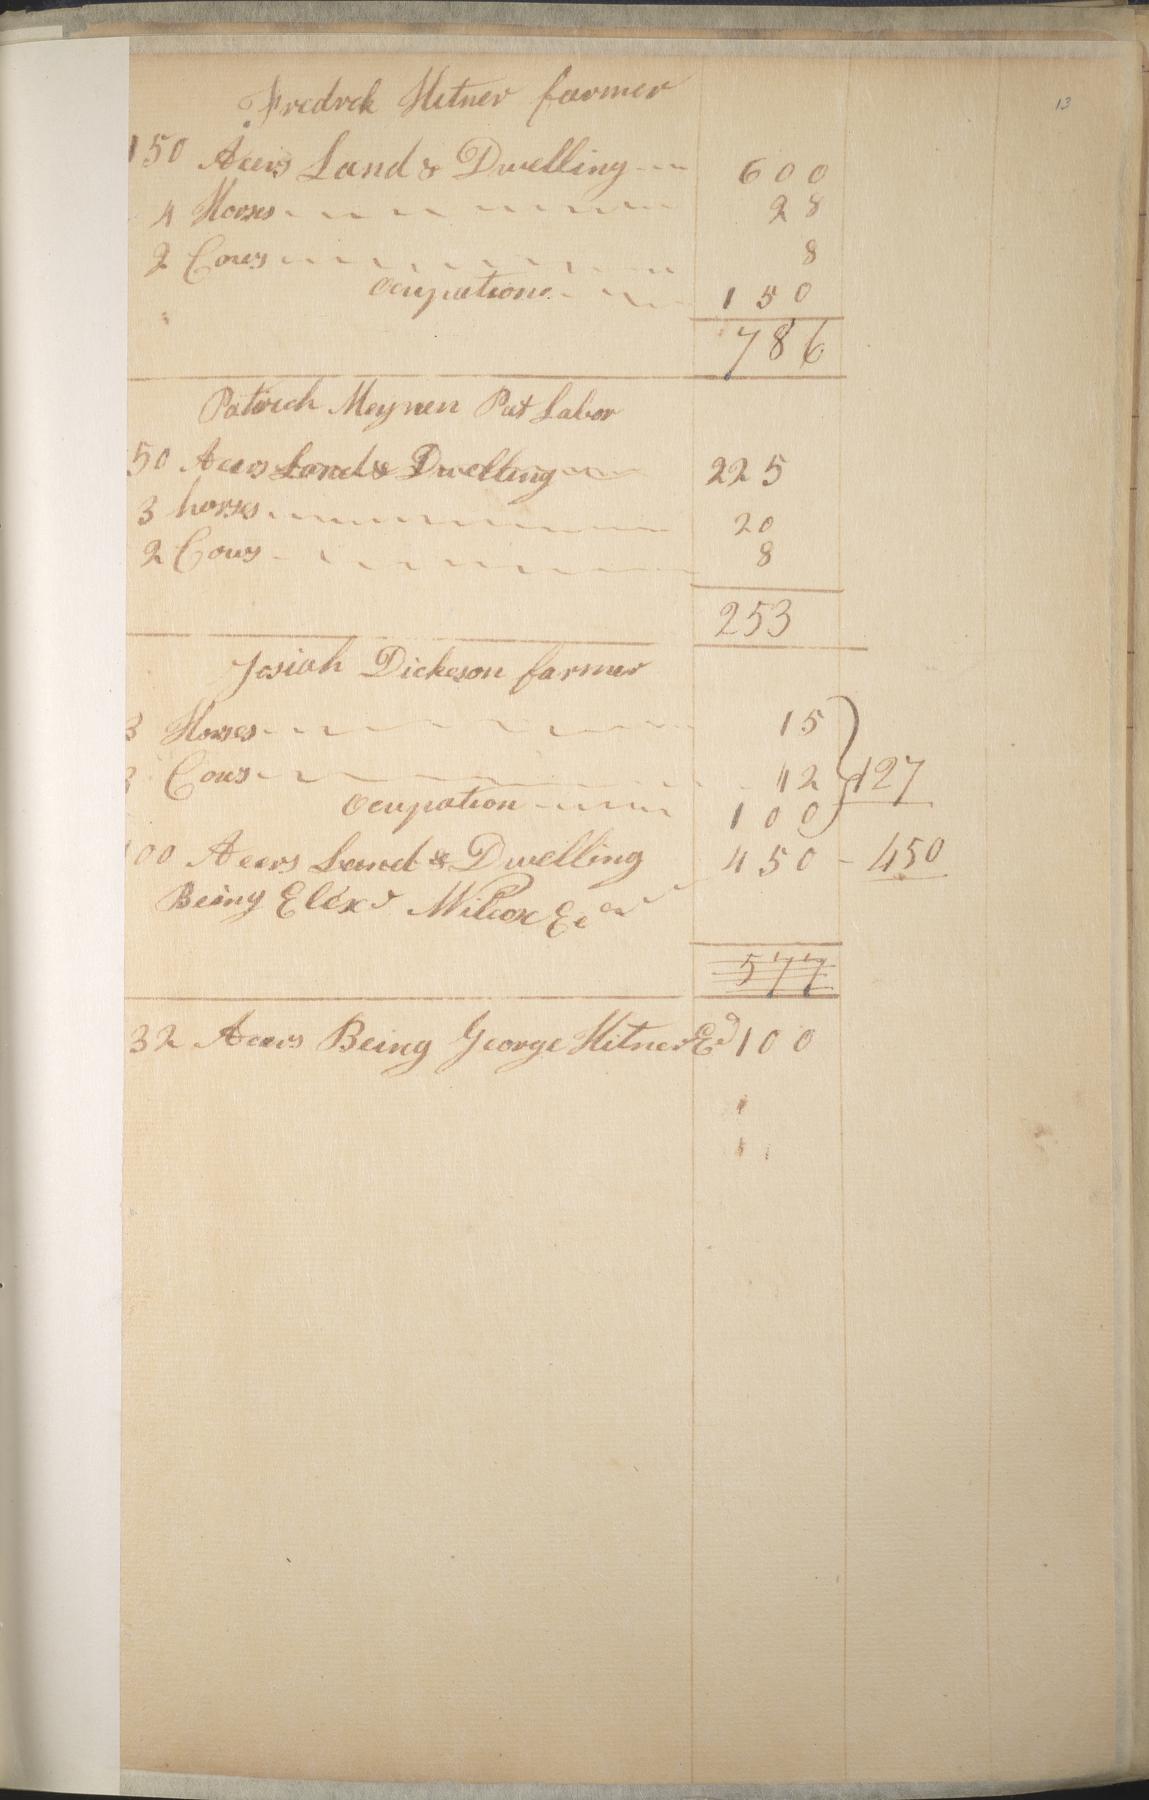 13
Fredrek Hitner farmer
150 Acers Land & Dwelling 600
4 Horses 28
2 Cows 8
Ocupation 150
786
Patrick Meynen Pat Labor
50 Acers Land & Dwelling 225
3 horses 20
2 Cows 8
253
Josiah Dickeson farmer
3 Horses 15
3 Cows 12 127
Ocupation 100
100 Acers Land & Dwelling 450 - 450
Being Elexr Wilcox
577
32 Acers Being George Hitner 100